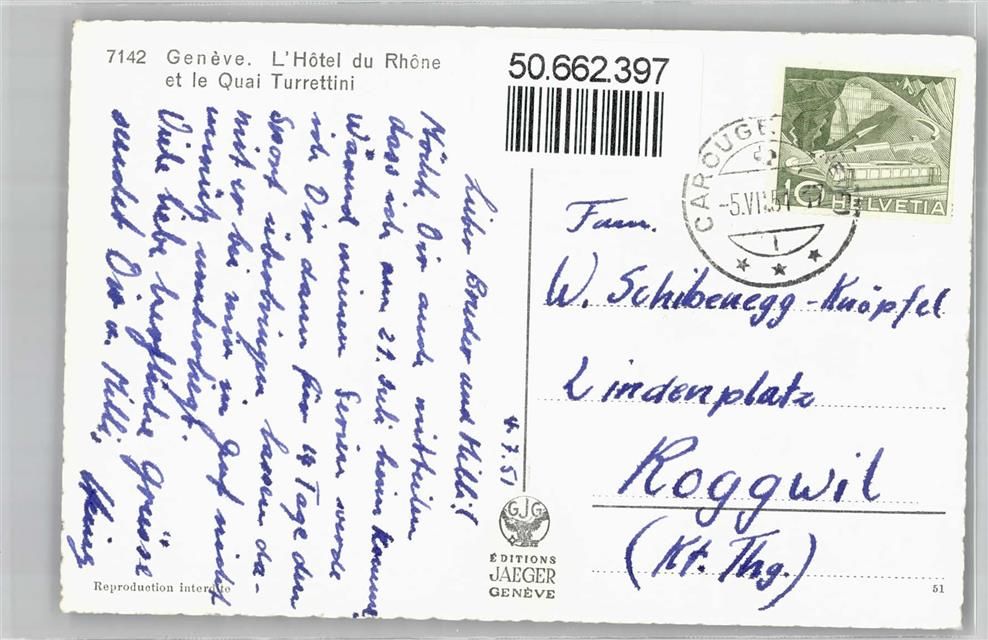 7142 Genève. L'Hôtel du Rhône
et le Quai Turrettini
50.662.397
CAROUGE
-5.VII.51
HELVETIA
10
4.7.51
Lieber Bruder und Milli!
Möchte Dir auch mitteilen
dass ich am 21. Juli heim komme
Während meinen Ferien werde
ich Dir dann für 14 Tage den
Sport überbringen lassen da-
mit er bei mir in Genf nicht
unnütz umherliegt.
Viele liebe herzliche Grüsse
sendet Dir u. Milli,
Heinz
Fam.
W. Schibenegg-Knöpfel
Lindenplatz
Roggwil
(Kt. Thg.)
GJG
ÉDITIONS
JAEGER
GENÈVE
Reproduction interdite
51